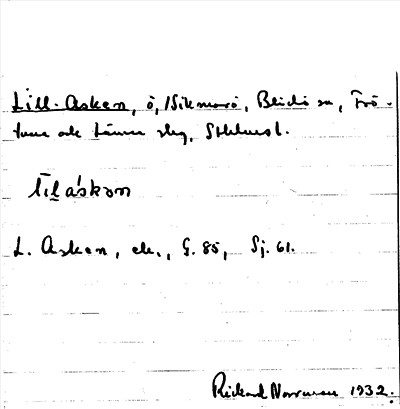 Lill-Asken, ö, Vikmarö, Blidö sn, Frö-
tuna och Länna skg, Sthlms l.
lìlàskon
L. Asken, ek., G. 85, Sj. 61.
Rickard Norrman 1932.